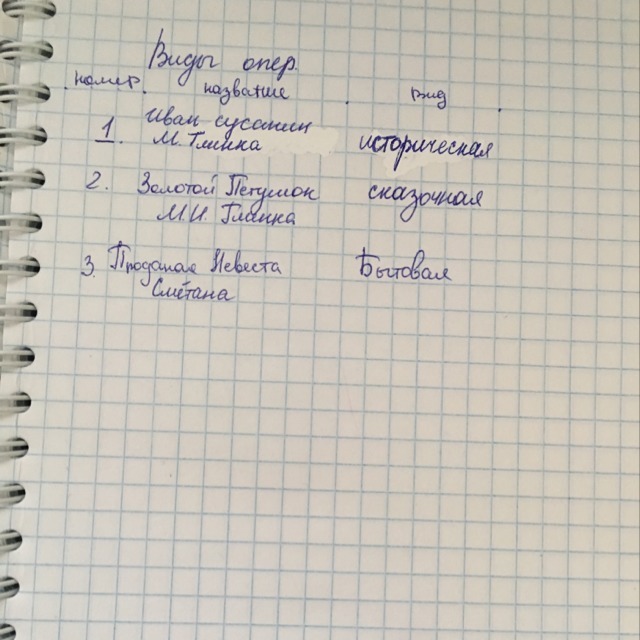 Виды опер.
номер. название вид
1. Иван сусанин историческая
М. Глинка
2. Золотой Петушок сказочная
М И Глинка
3. Проданая Невеста Бытовая
Сметана